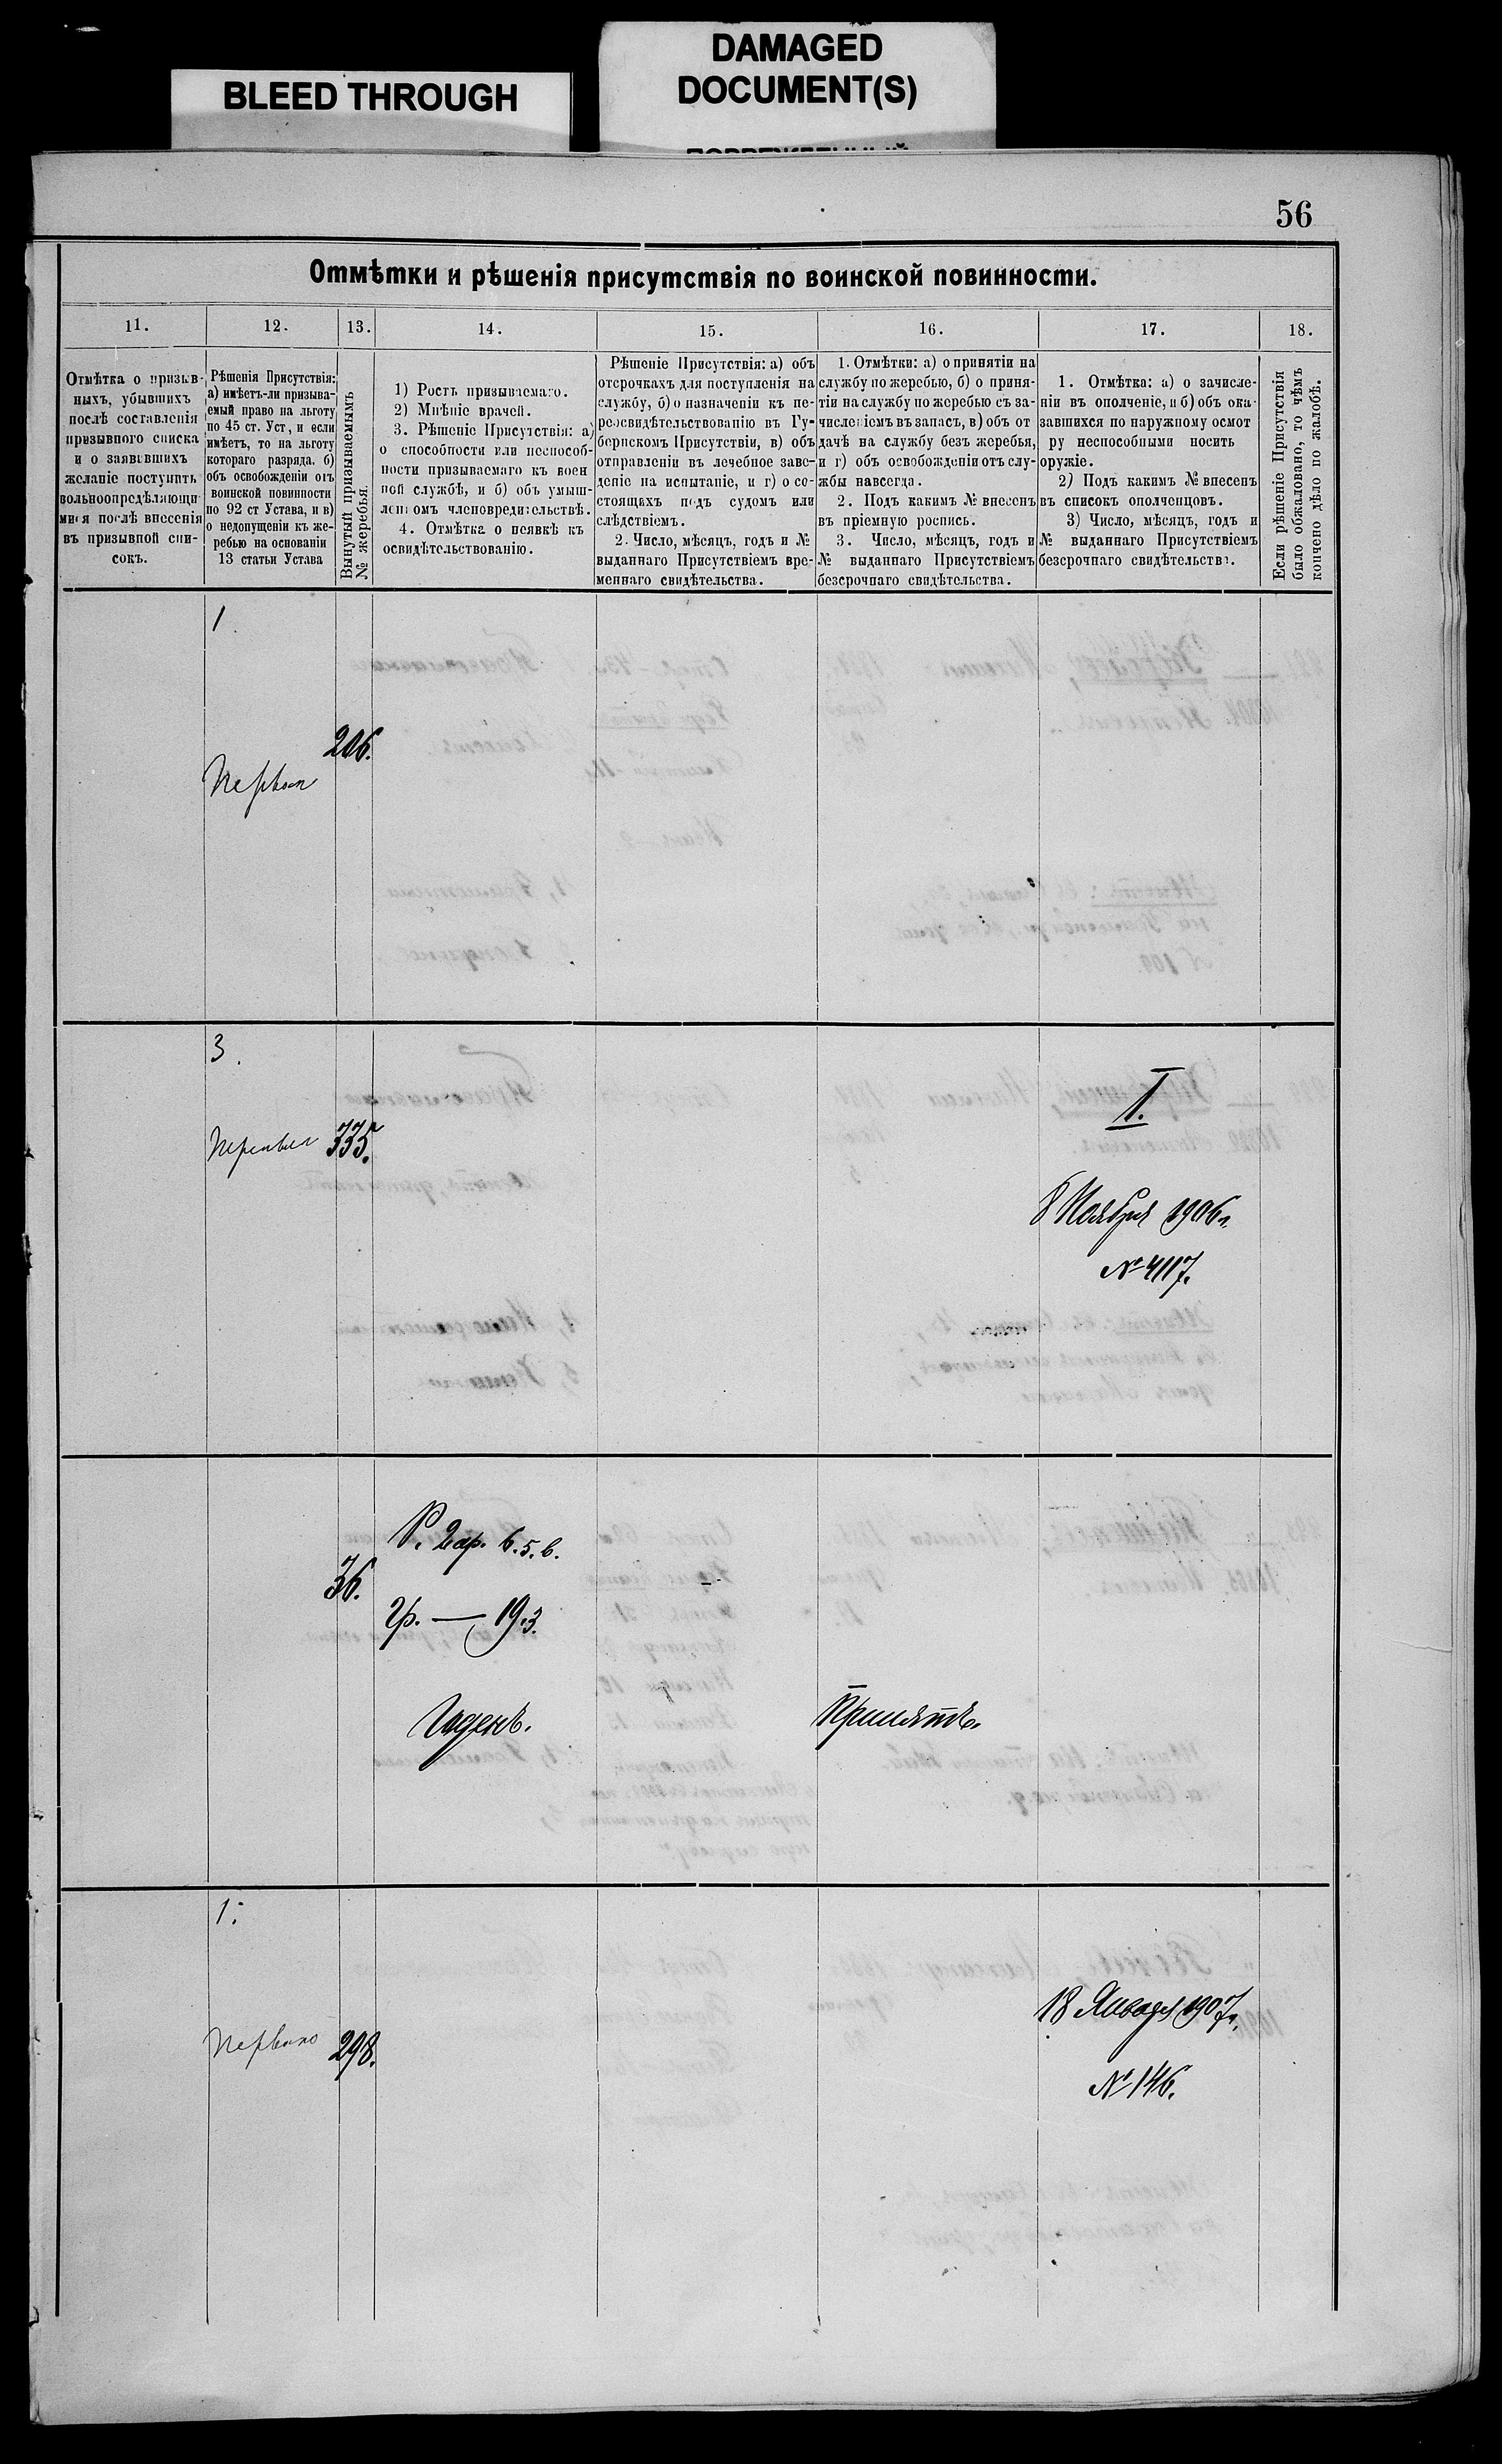 BLEED THROUGH
DAMAGED
DOCUMENT(S)
56
Отмѣтки и рѣшенія присутствія по воинской повинности.
11. 12. 13. 14. 15. 16. 17. 18.
Отмѣтка о призыв-
ныхъ, убывшихъ
послѣ составленія
призывного списка
и о заявившихъ
желаніе поступить
вольноопредѣляющи
мися послѣ внесенія
въ призывной спи-
сокъ.
Рѣшенія Присутствія:
а) имѣетъ-ли призыва-
емый право на льготу
по 45 ст. Уст, и если
имѣетъ, то на льготу
котораго разряда, б)
объ освобожденіи отъ
воинской повинности
по 92 ст Устава, и в)
о недопущеніи къ же-
ребью на основаніи
13 статьи Устава
Вынутый призываемымъ
№ жеребья.
1) Ростъ призываемаго.
2) Мнѣніе врачей.
3. Рѣшеніе Присутствія: а)
о способности или неспособ-
ности призываемаго къ воен
ной службѣ, и б) объ умыш-
ленномъ членовредительствѣ.
4. Отмѣтка о неявкѣ къ
освидѣтельствованію.
Рѣшеніе Присутствія: а) объ
отсрочкахъ для поступленія на
службу, б) о назначеніи къ пе-
реосвидѣтельствованію въ Гу-
бернскомъ Присутствіи, в) объ
отправленіи въ лечебное заве-
деніе на испытаніе, и г) о со-
стоящихъ подъ судомъ или
слѣдствіемъ.
2. Число, мѣсяцъ, годъ и №
выданнаго Присутствіемъ вре-
меннаго свидѣтельства.
1. Отмѣтки: а) о принятіи на
службу по жеребью, б) о приня-
тіи на службу по жеребью съ за-
численіемъ въ запасъ, в) объ от
дачѣ на службу безъ жеребья,
и г) объ освобожденіи отъ слу-
жбы навсегда.
2. Подъ какимъ № внесенъ
въ пріемную роспись.
3. Число, мѣсяцъ, годъ и
№ выданнаго Присутствіемъ
безсрочнаго свидѣтельства.
1. Отмѣтка: а) о зачисле-
ніи въ ополченіе, и б) объ ока-
завшихся по наружному осмот
ру неспособными носить
оружіе.
2) Подъ какимъ № внесенъ
въ списокъ ополченцовъ.
3) Число, мѣсяцъ, годъ и
№ выданнаго Присутствіемъ
безсрочнаго свидѣтельства.
Если рѣшеніе Присутствія
было обжаловано, то чѣмъ
кончено дѣло по жалобѣ.
1.
206.
3.
335.
I.
8 Ноября 1906 г.
№ 4117.
Р. 2 ар. 6.5.в.
36.
Гр. — 19.3.
Годенъ.
Принятъ.
1.
298.
18 Января 1907 г.
№ 146.